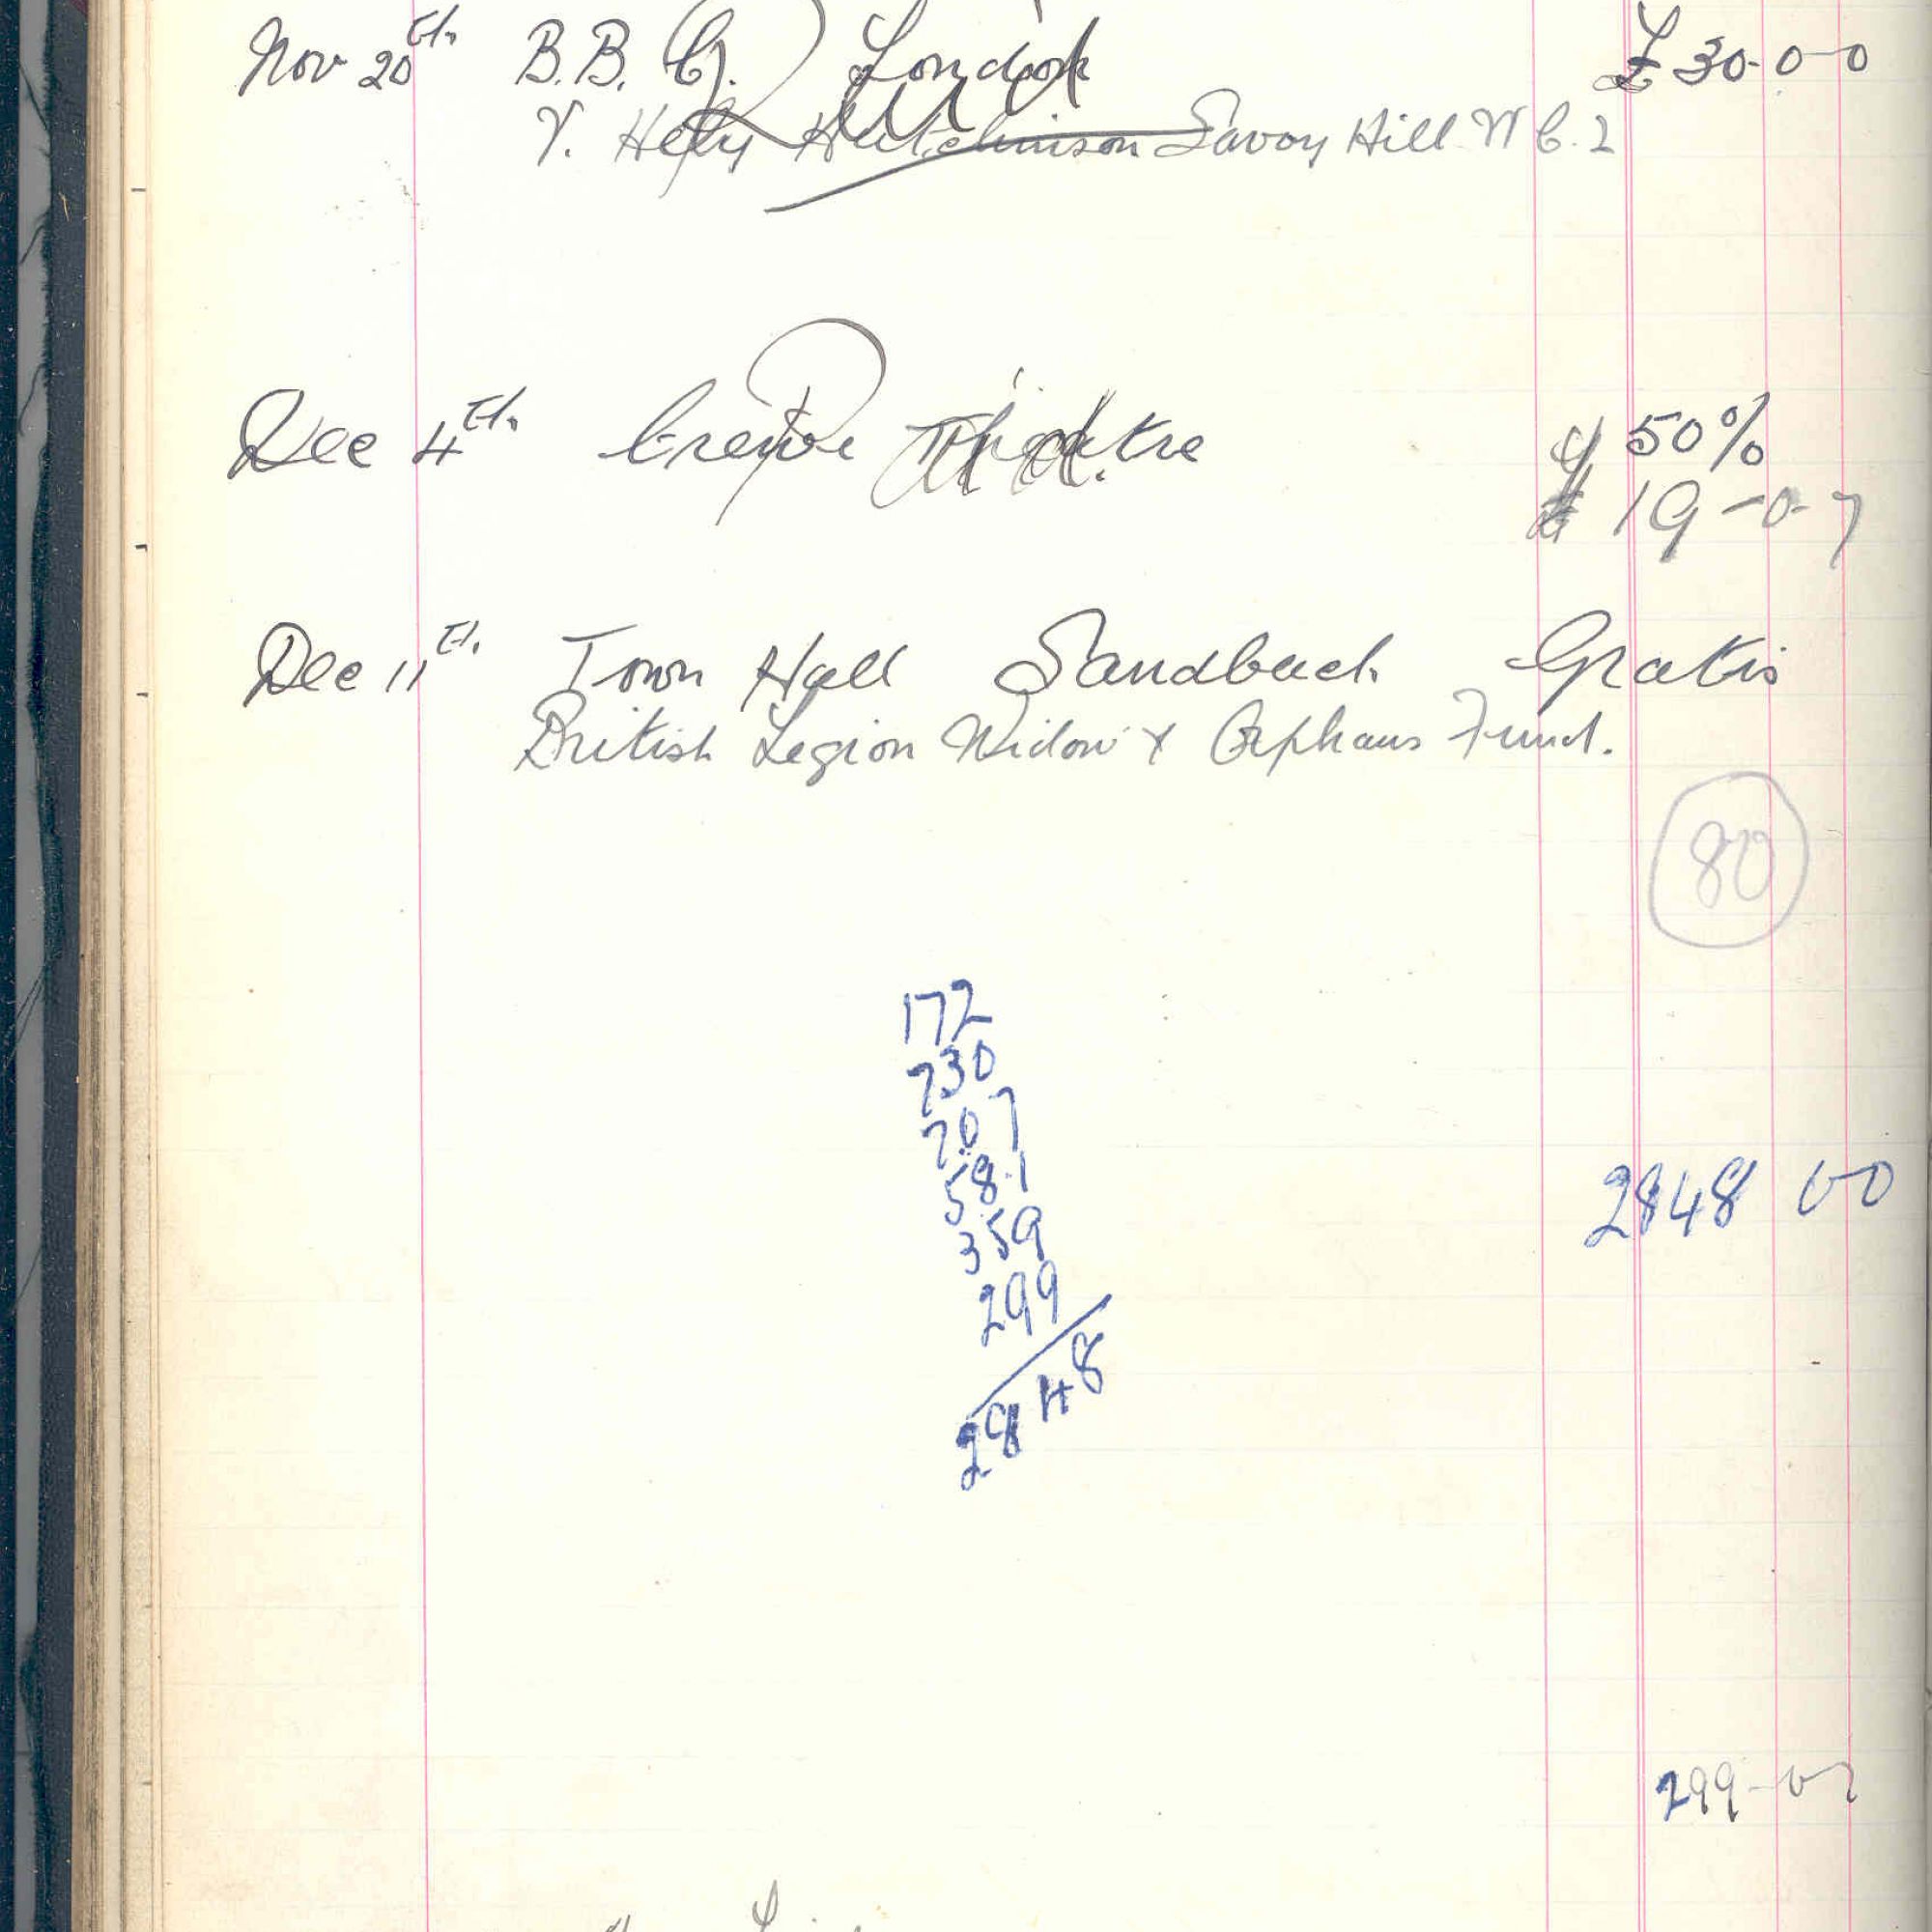 Nov 20th B.B.C. London £30-0-0
V. Hely Hutchinson Savoy Hill W C. 2
Dec 4th Crewe Theatre 50%
Pd. £ 19-0-7
Dec 11th Town Hall Sandbach Gratis
British Legion Widow & Orphans Fund.
80
172
730
707
581
359
299
2848
2848 0-0
299-0-7